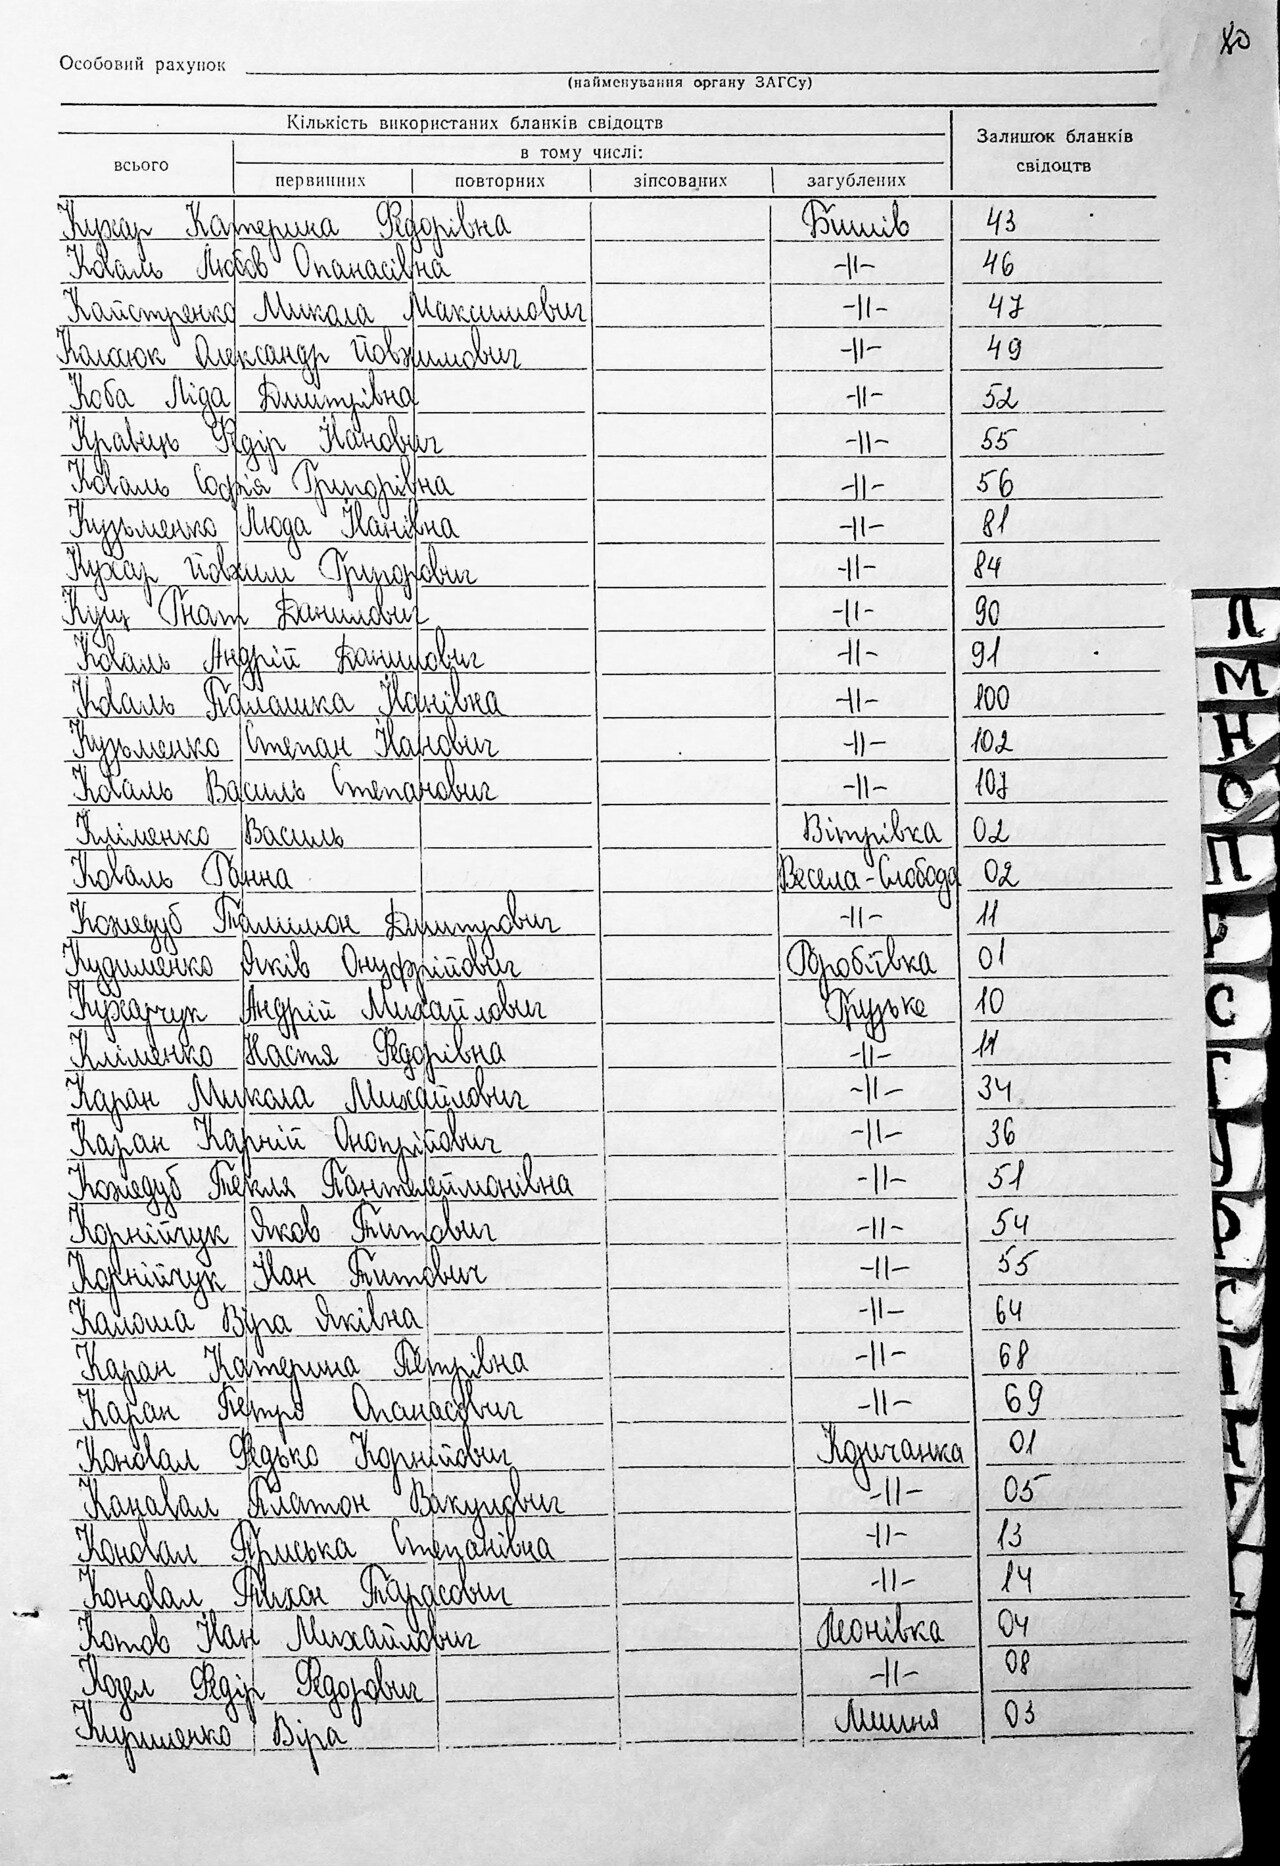 80
Особовий рахунок
(найменування органу ЗАГСу)
Кількість використаних бланків свідоцтв
Залишок бланків свідоцтв
всього
в тому числі:
первинних повторних зіпсованих загублених
Кухар Катерина Федорівна Бишів 43
Коваль Любов Опанасівна -//- 46
Кайстренко Микола Максимович -//- 47
Олександр Йовхимович -//- 49
Коба Ліда Дмитрівна -//- 52
Кравець Федір Іванович -//- 55
Коваль Софія Григорівна -//- 56
Кузьменко Люда Іванівна -//- 81
Кухар Йовхим Григорович -//- 84
Кущ Гнат Данилович -//- 90
Коваль Андрій Данилович -//- 91
Коваль Палашка Іванівна -//- 100
Кузьменко Степан Іванович -//- 102
Коваль Василь Степанович -//- 107
Кліменко Василь Вітрівка 02
Коваль Ганна Весела-Слобода 02
Кожедуб Палимон Дмитрович -//- 11
Кудименко Яків Онуфрійович 01
Кухарчук Андрій Михайлович Грузьке 10
Кліменко Настя Федорівна -//- 11
Каран Микола Михайлович -//- 34
Каран Карній Онопрійович -//- 36
Кожедуб Текля Пантилеймонівна -//- 51
Корнійчук Яков Титович -//- 54
Корнійчук Іван Титович -//- 55
Калоша Віра Яківна -//- 64
Каран Катерина Петрівна -//- 68
Каран Петро Опанасович -//- 69
Коновал Федько Корнійович Козичанка 01
Кановал Платон Вакулович -//- 05
Коновал Приська Степанівна -//- 13
Коновал Тихон Тарасович -//- 14
Котов Іван Михайлович Леонівка 04
Козел Федір Федорович -//- 08
Кириленко Віра 03
Л
М
Н
О
П
Р
С